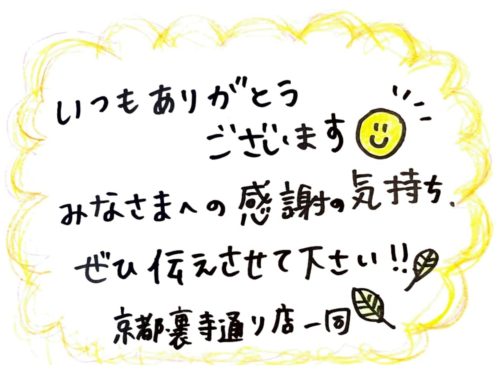 いつもありがとう
ございます
みなさまへの感謝の気持ち、
ぜひ伝えさせて下さい!!
京都裏寺通り店一同